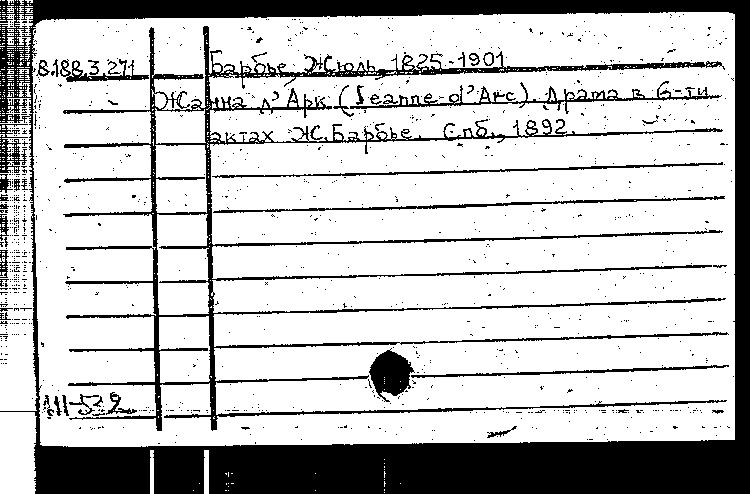 8.188.3.271 Барбье Жюль, 1825-1901
Жанна д'Арк (Jeanne-d'Arc). Драма в 6-ти
актах Ж. Барбье. Спб., 1892.